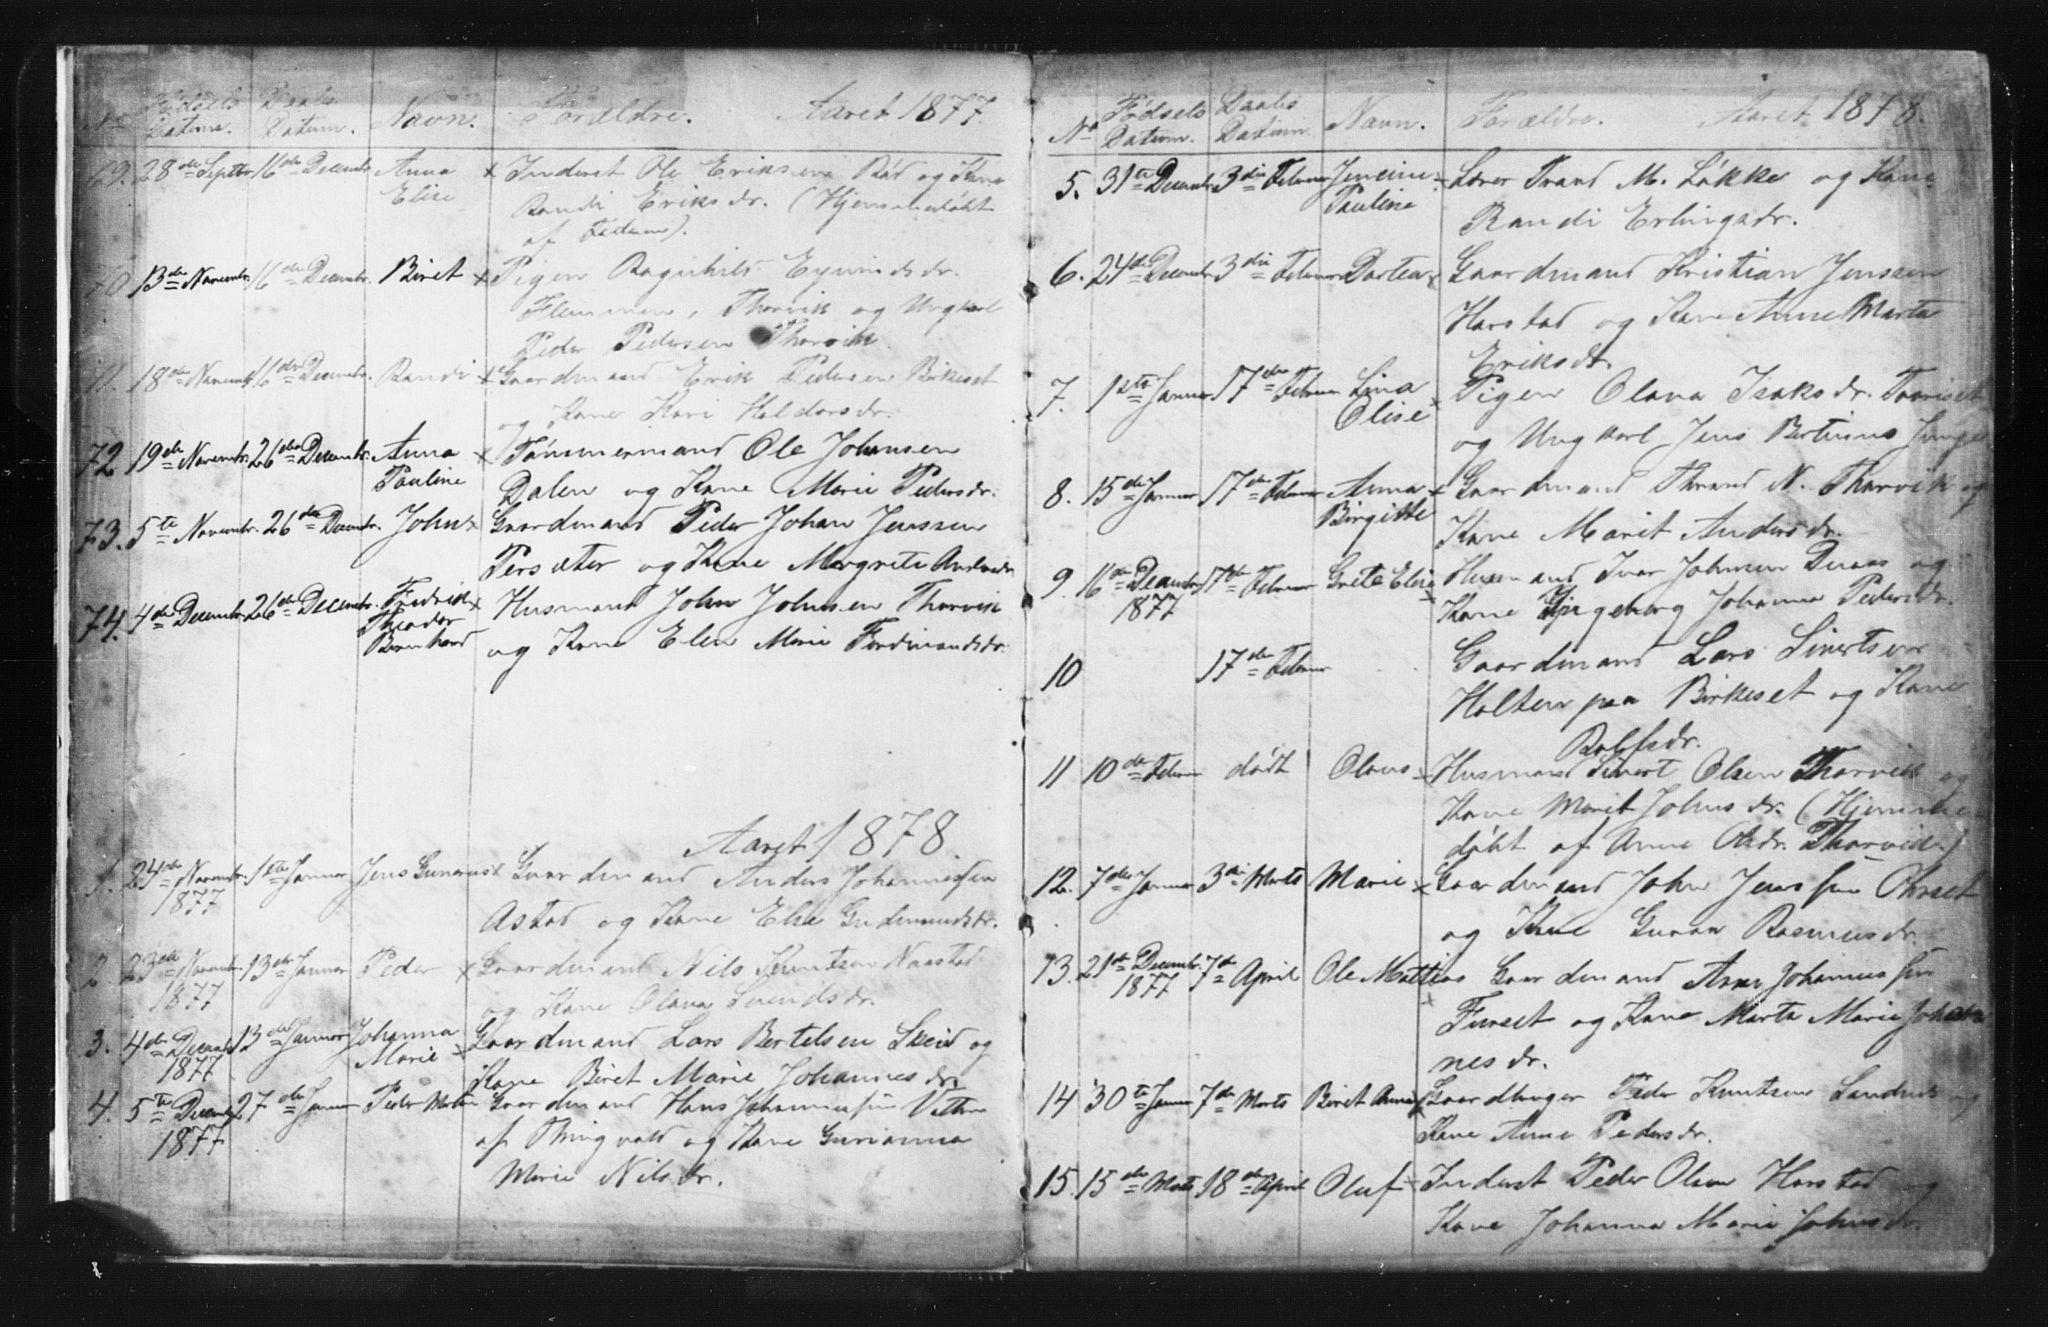 No Fødsels Datum. Daabs Datum. Navn. Forældre. Aaret 1877
69. 28de Septbr 16de Decembr Anna x Inderst Ole Eriksen Rød og Kone
Elise Randi Eriksdr. (Hjemmedøbt
af Faderen).
70 13de Novembr. 16de Decembr. Biret x Pigen Ragnhild Eyvindsdr.
Flemmen, Thorvik og Ungkarl
Peder Pedersen Thorvik.
71. 18de Novembr 16de Decembr. Randi x Gaardmand Erik Pedersen Birkeset
og Kone Kari Haldorsdr.
72 19de Novembr. 26de Decembr. Anna x Tømmermand Ole Johnsen
Pauline Dalen og Kone Marie Pedersdr.
73. 5te Novembr. 26de Decembr. John x Gaardmand Peder Johan Jenssen
Persæter og Kone Margrete Andersdr.
74. 4de Decembr. 26de Decembr. Fredrik x Husmand John Johnsen Thorvik
Theodor og Kone Elen Marie Ferdinandsdr.
Bernhard
Aaret 1878
1. 24de Novembr. 1ste Januar Jens Gunerius x Gaardmand Anders Johannessen
1877 Astad og Kone Else Gudmundsdr.
2. 23de Novembr. 13de Januar Peder x Gaardmand Nils Knutsen Naastad
1877 og Kone Olava Svendsdr.
3. 4de Decembr 13de Januar Johanna Gaardmand Lars Bertelsen Skeid og
1877 Marie x Kone Biret Marie Johannesdr.
4. 5te Decembr 27de Januar Peder Martin Gaardmand Hans Johannessen
1877 af Thingvold og Kone Gurianna
Marie Nilsdr.
No Fødsels Datum. Daabs Datum. Navn. Forældre. Aaret 1878.
5. 31te Decembr. 3die Februar Jensine Lærer Trand M. Løkke og Kone
Pauline Randi Erlingsdr.
6. 24de Decembr. 3die Februar Dortea x Gaardmand Kristian Jenssen
Harstad og Kone Anne Marta
Eriksdr.
7. 1ste Januar 17de Februar Lina Pigen Olava Isaksdr.
Olise x og Ungkarl Jens Bertinus
8. 15de Januar 17de Februar Anna x Gaardmand Thrand N. Thorvik og
Birgitte Kone Marit Andersdr.
9 16de Decembr 17de Februar Grete Elise Husmand Ivar Johnsen og
1877 x Kone Ingeborg Johanna Pedersdr.
10 17de Februar Gaardmand Lars Sivertsen
Holten paa Birkeset og Kone
Rolfsdr.
11 10de Februar dødt Olaus Husmand Sivert Olsen Thorvik og
Kone Marit Johnsdr. (Hjemme
døbt af Anne Olsdr. Thorvik.)
12. 7de Januar 3die Marts Marie x Gaardmand John Jenssen Ørset
og Kone Gunan Rasmusdr.
13. 21de Decembr. 7de April Ole Mattias Gaardmand Arne Johannessen
1877 x Furset og Kone Marta Marie Johan
nesdr.
14 30te Januar 7de Marts Biret Anna x Gaardbruger Peder Knutsen og
Kone Anne Pedersdr.
15. 15de Marts 18de April Oluf Inderst Peder Olsen Harstad og
Kone Johanna Marie Johnsdr.